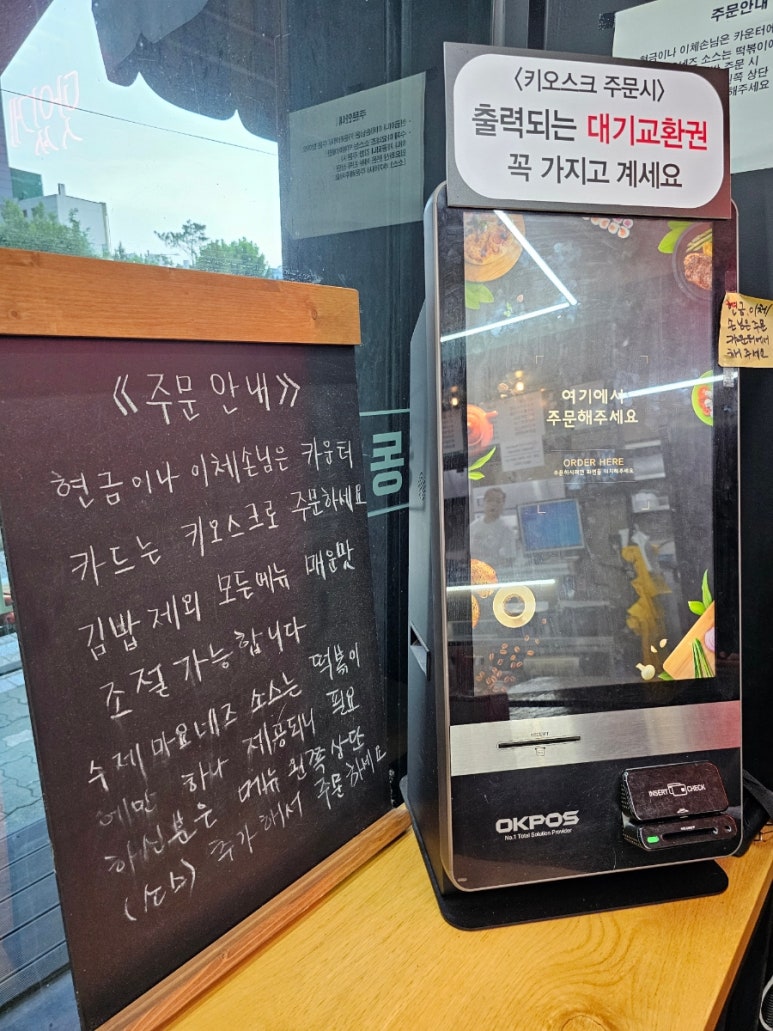 《주문안내》
현금이나 이체손님은 카운터
카드는 키오스크로 주문하세요
김밥제외 모든메뉴 매운맛
조절가능합니다
수제마요네즈 소스는 떡볶이
에만 하나 제공되니 필요
하신분은 메뉴 왼쪽상단
(소스) 추가해서 주문하세요
<키오스크 주문시>
출력되는 대기교환권
꼭 가지고 계세요
여기에서
주문해주세요
ORDER HERE
RECEIPT
INSERT CHECK
OKPOS
No.1 Total Solution Provider
현금 이체/
손님은 주문
카운터에서
해주세요
주문안내
현금이나 이체손님은 카운터에
소스는 떡볶이에
주문 시
왼쪽 상단
해주세요
주문안내